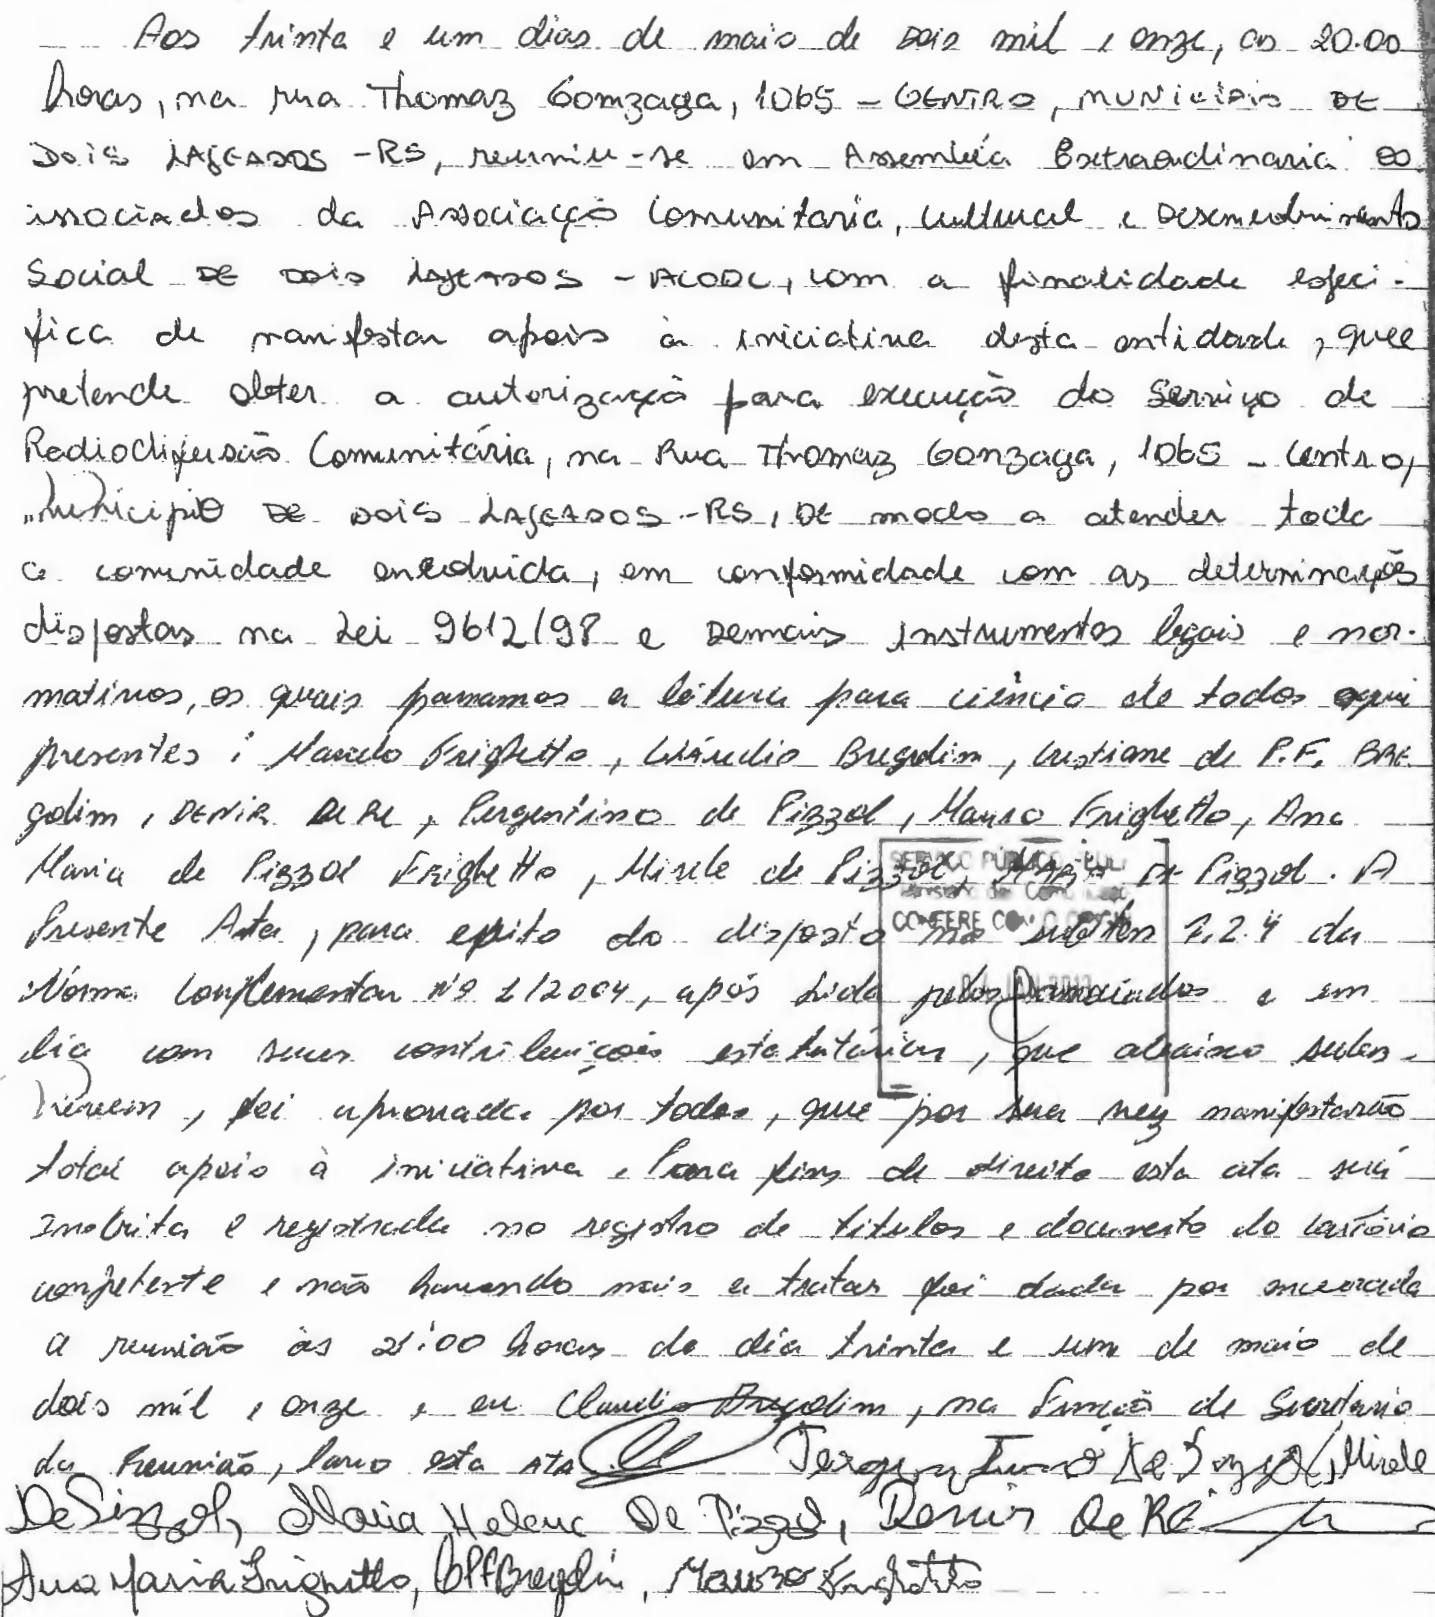 Aos trinta e um dias de maio de Dois mil e onze, as 20.00
horas, na rua Thomaz Gonzaga, 1065 - CENTRO, MUNICIPIO DE
DOIS LAJEADOS - RS, reuniu-se em Assembléia Extraordinaria os
associados da Associação Comunitaria, Cultural e Desenvolvimento
Social DE DOIS LAJEADOS - ACODL, com a finalidade especi-
fica de manifestar apoio à iniciativa desta entidade, que
pretende obter a autorização para execução do Serviço de
Radiodifusão Comunitária, na Rua Thomaz Gonzaga, 1065 - Centro,
Municipio DE DOIS LAJEADOS - RS, DE modo a atender toda
a comunidade envolvida, em conformidade com as determinações
dispostas na Lei 9612/98 e Demais instrumentos legais e nor-
mativos, os quais passamos a leitura para ciência de todos aqui
presentes: Marcelo Frighetto, Cláudio Bregolim, Cristiane de P.F. BRE
golim, DENIR DE RE, Pergentino de Pizzol, Mauro Frighetto, Ana
Maria de Pizzol Frighetto, Mirele de Pizzol, DE Pizzol. A
SERVIÇO PÚBLICO
Presente Ata, para efeito do disposto no subitem 7.2.4 da
CONFERE COM O
Norma Complementar nº 1/2004, após lida pelos associados e em
dia com suas contribuições estatutárias, que abaixo subs-
crevem, foi aprovada por todos, que por sua vez manifestarão
total apoio à iniciativa. Para fins de direito esta ata será
inscrita e registrada no registro de titulos e documento do cartório
competente e não havendo mais a tratar foi dada por encerrada
a reunião às 21:00 horas do dia trinta e um de maio de
dois mil e onze, e eu Claudio Bregolim, na Função de Secretario
da Reunião, lavro esta ATA Pergentino De Pizzol, Mirele
De Pizzol, Maria Helena De Pizzol, Denir De RÉ
Ana Maria Frighetto, CPFBregolin, Mauro Frighetto